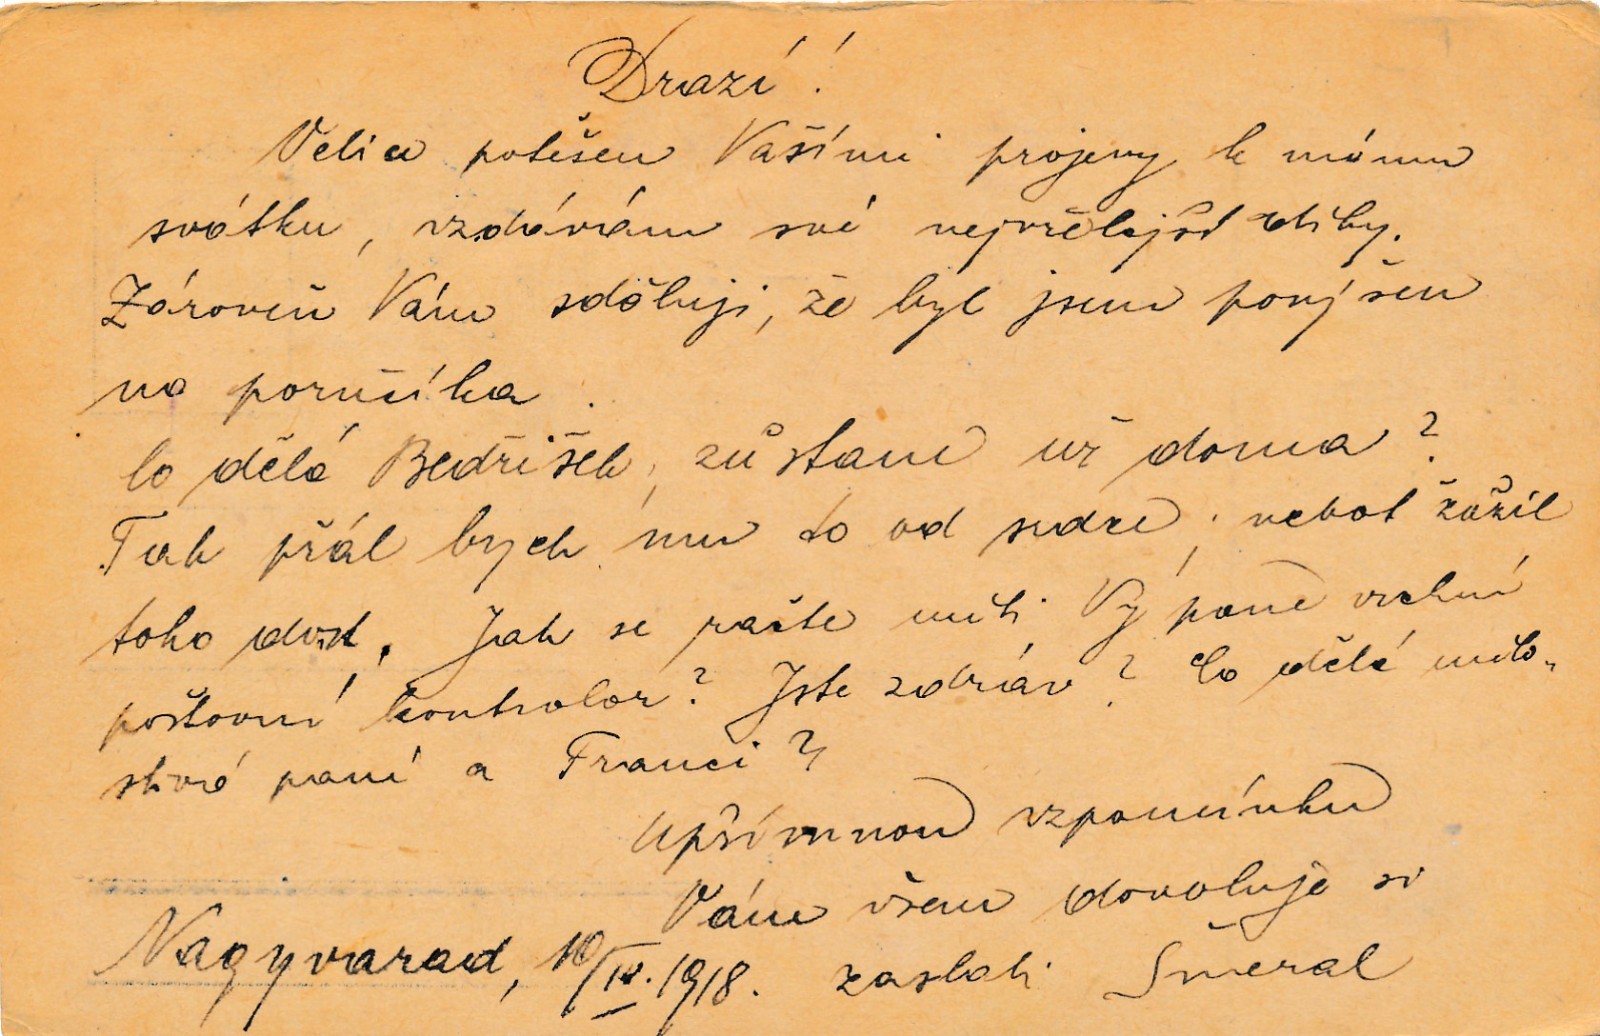 Drazí!
Velice potěšen Vašími projevy k mému
svátku, vzdávám své nejvřelejší díky.
Zároveň Vám sděluji, že byl jsem povýšen
na poručíka.
Co dělá Bedříšek, zůstane už doma?
Tak přál bych mu to od srdce, neboť zažil
toho dost. Jak se ráčíte míti Vý pane vrchní
poštovní kontrolor? Jste zdráv? Co dělá milo-
stivá paní a Franci?
Upřímnou vzpomínku
Vám všem dovoluje si
zaslati Šmeral
Nagyvarad, 10/IV. 1918.